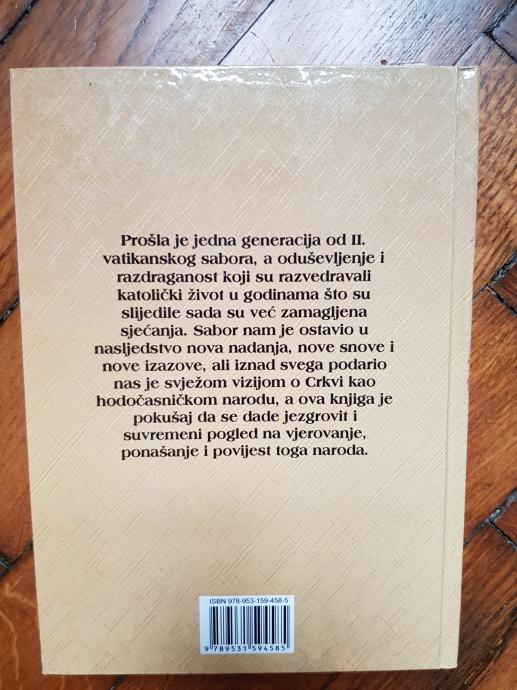 Prošla je jedna generacija od II.
vatikanskog sabora, a oduševljenje i
razdraganost koji su razvedravali
katolički život u godinama što su
slijedile sada su već zamagljena
sjećanja. Sabor nam je ostavio u
nasljedstvo nova nadanja, nove snove i
nove izazove, ali iznad svega podario
nas je svježom vizijom o Crkvi kao
hodočasničkom narodu, a ova knjiga je
pokušaj da se dade jezgrovit i
suvremeni pogled na vjerovanje,
ponašanje i povijest toga naroda.
ISBN 978-953-159-458-5
9 789531 594585